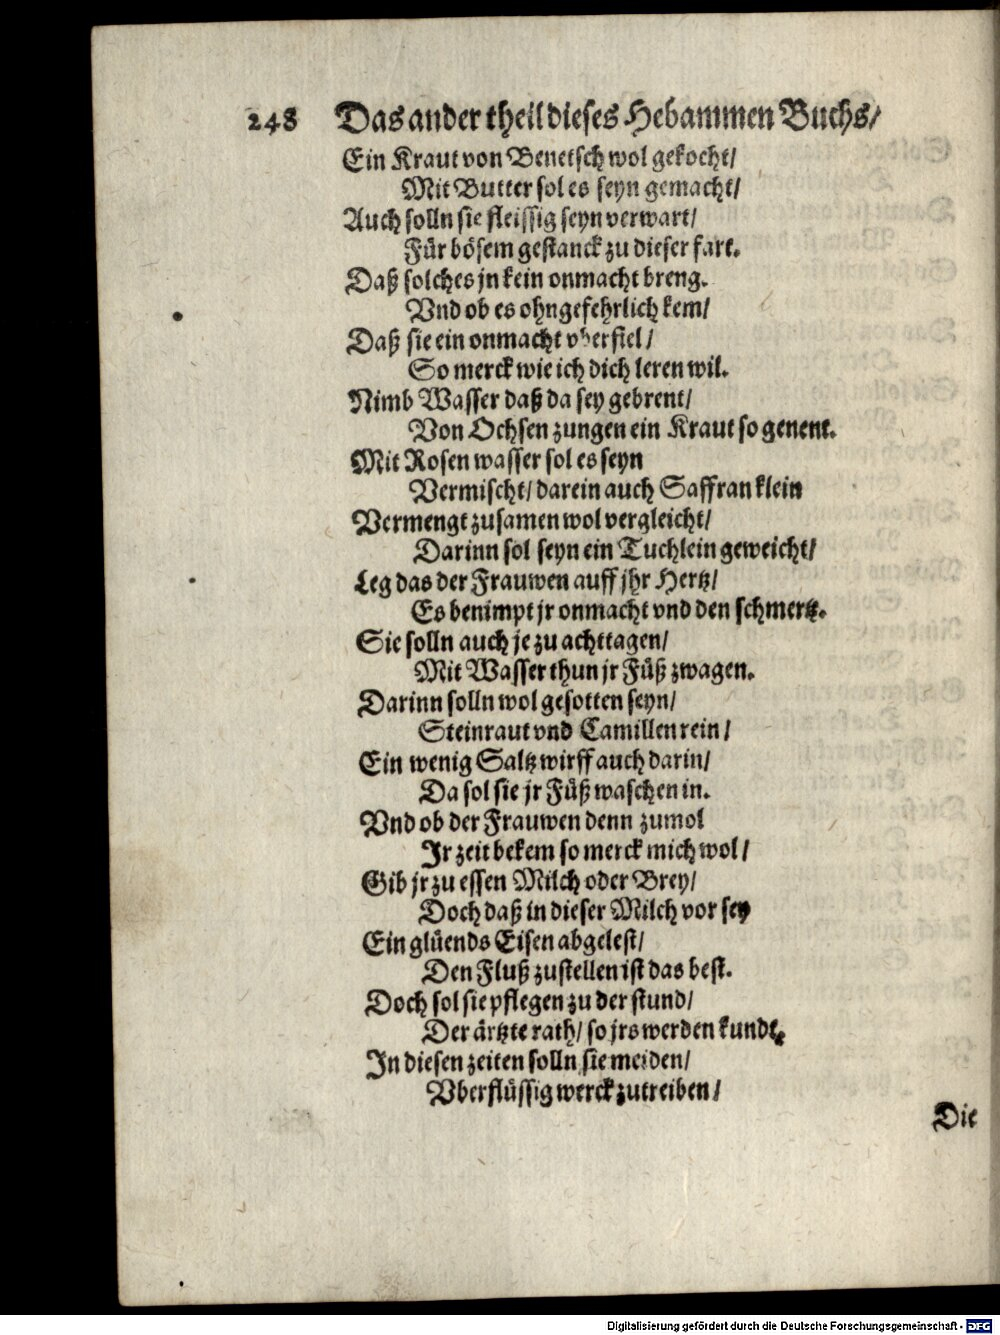 248 Das ander theil dieses Hebammen Buchs/
Ein Kraut von Benetsch wol gekocht/
Mit Butter sol es seyn gemacht/
Auch solln sie fleissig seyn verwart/
Für bösem gestanck zu dieser fart.
Daß solches jn kein onmacht breng.
Vnd ob es ohngefehrlich kem/
Daß sie ein onmacht vberfiel/
So merck wie ich dich leren wil.
Nimb Wasser daß da sey gebrent/
Von Ochsen zungen ein Kraut so genent.
Mit Rosen wasser sol es seyn
Vermischt/ darein auch Saffran klein
Vermengt zusamen wol vergleicht/
Darinn sol seyn ein Tuchlein geweicht/
Leg das der Frauwen auff jhr Hertz/
Es benimpt jr onmacht vnd den schmertz.
Sie solln auch je zu acht tagen/
Mit Wasser thun jr Füß zwagen.
Darinn solln wol gesotten seyn/
Steinraut vnd Camillen rein/
Ein wenig Saltz wirff auch darin/
Da sol sie jr Füß waschen in.
Vnd ob der Frauwen denn zumol
Jr zeit bekem so merck mich wol/
Gib jr zu essen Milch oder Brey/
Doch daß in dieser Milch vor sey
Ein glüends Eisen abgelest/
Den Fluß zustellen ist das best.
Doch sol sie pflegen zu der stund/
Der ärtzte rath/ so jrs werden kundt.
In diesen zeiten solln sie meiden/
Vberflüssig werck zutreiben/
Die
Digitalisierung gefördert durch die Deutsche Forschungsgemeinschaft - DFG